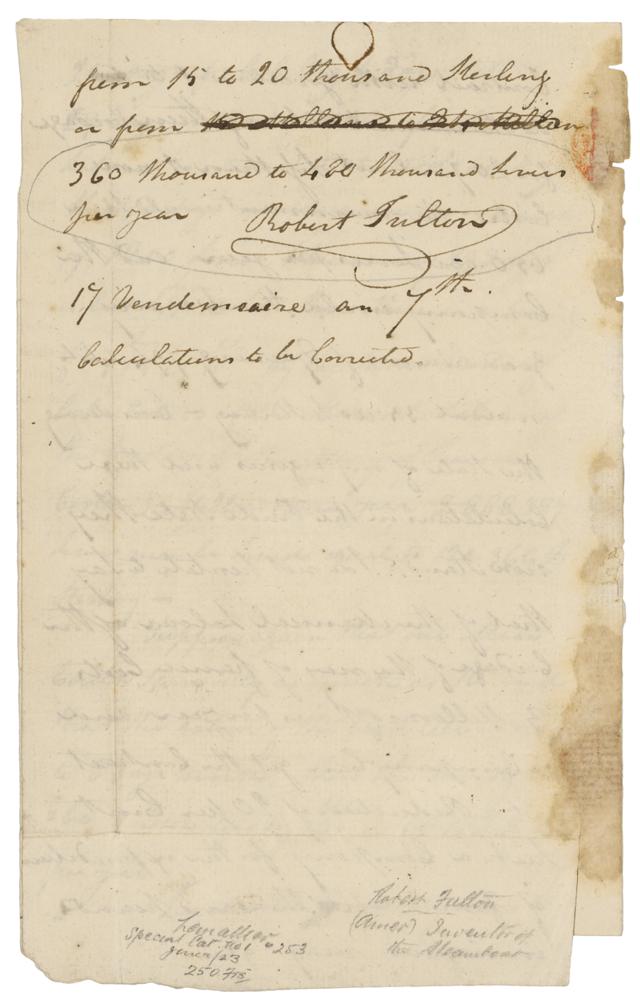 from 15 to 20 thousand Sterling
or from
360 thousand to 480 thousand livers
per year Robert Fulton
17 Vendemiaire an 7th.
Calculations to be Corrected.
Robert Fulton
(Amer) Inventor of
the Steamboat
Special Cat. No 1 #253
250 frs